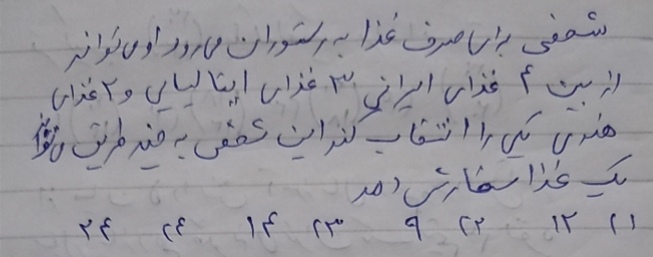 شخصی برای صرف غذا به رستوران می رود او می تواند
از بین ۴ غذای ایرانی ۳ غذای ایتالیایی و ۲ غذای
هندی یکی را انتخاب کند این شخص به چند طریق می تواند
یک غذا سفارش دهد
۱) ۱۲ ۲) ۹ ۳) ۱۴ ۴) ۲۴